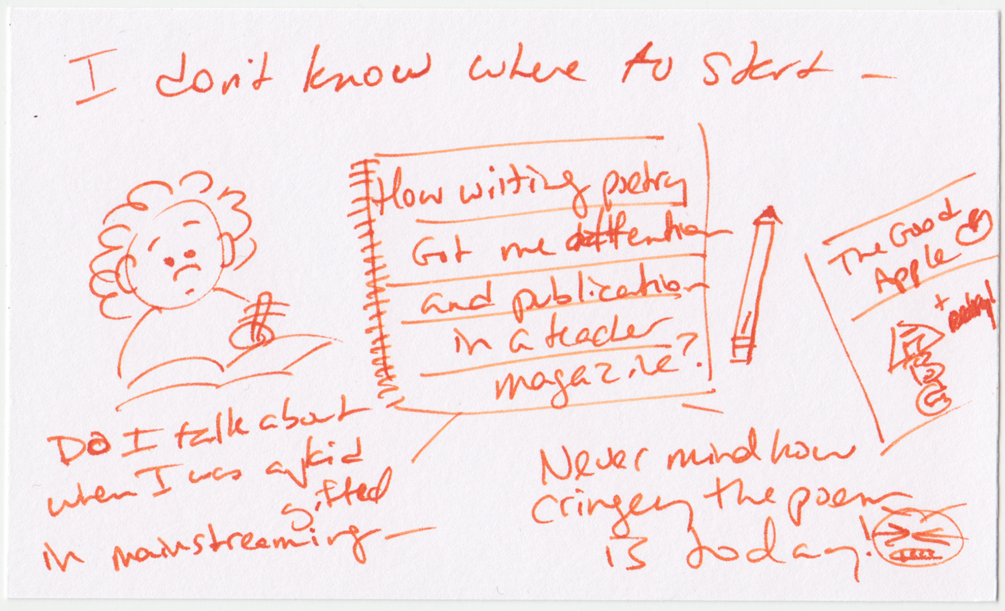 I don't know where to start –
How writing poetry
Got me attention
and publication
in a teacher
magazine?
The Good
Apple
+
Do I talk about
when I was a kid
gifted
in mainstreaming –
Never mind how
cringey the poem
is today!